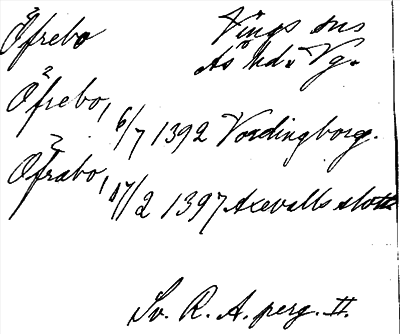 Öfrebo Vings sns
Ås hd. Vg.
Öfrebo, 6/7 1392 Vordingborg.
Öfrabo, 17/2 1397 Axevalls slott
Sv. R. A. perg. II.